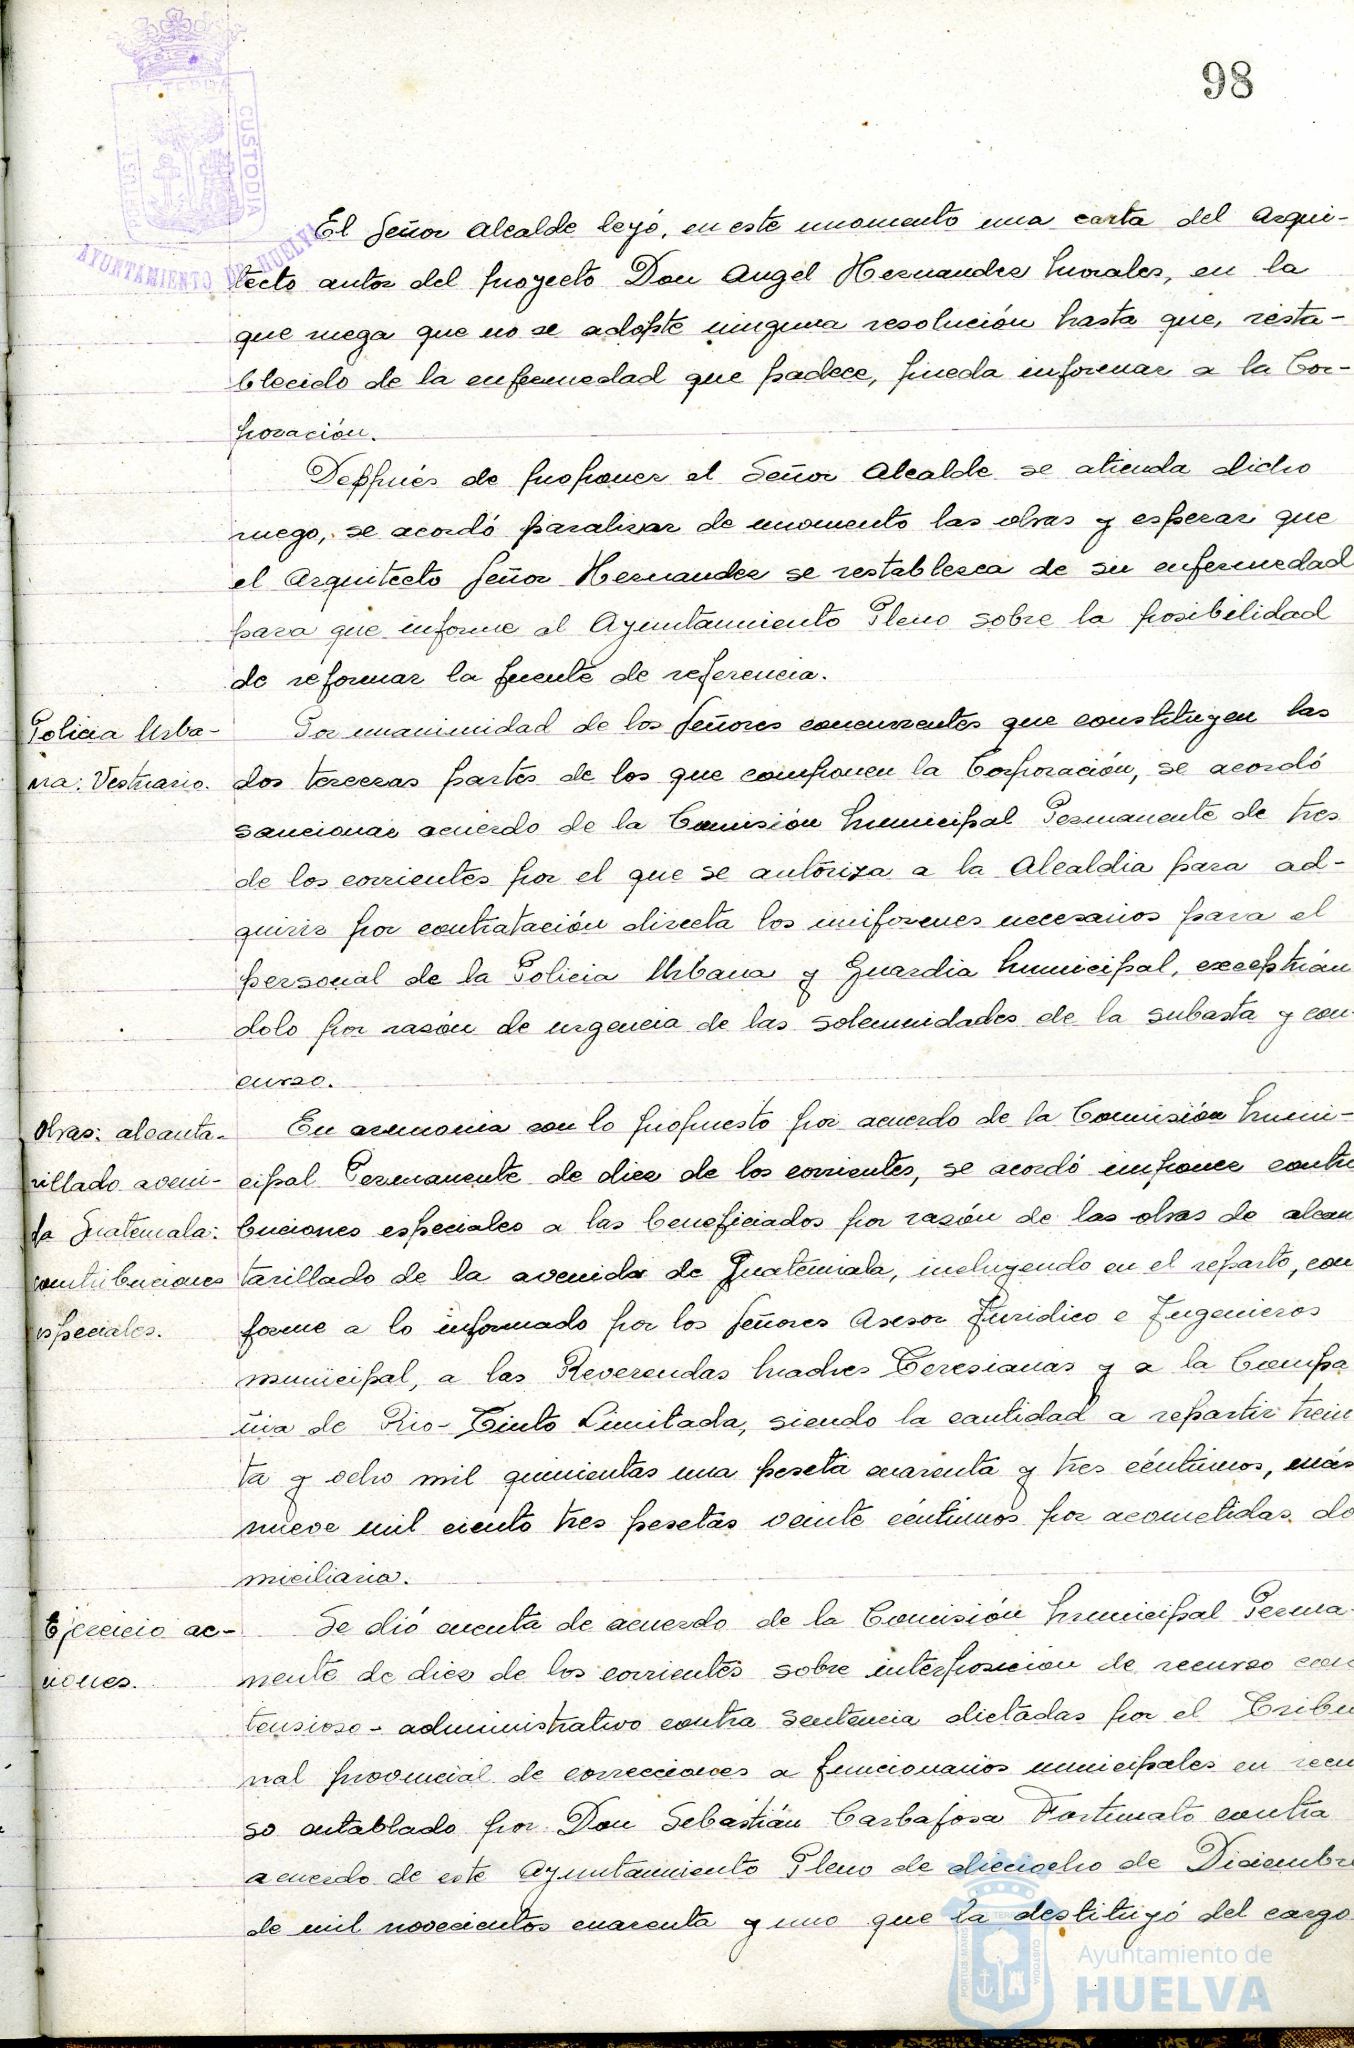 98
PORTUS
CUSTODIA
AYUNTAMIENTO DE HUELVA
El Señor Alcalde leyó, en este momento una carta del Arqui-
tecto autor del proyecto Don Angel Hernandez Morales, en la
que ruega que no se adopte ninguna resolución hasta que, resta-
blecido de la enfermedad que padece, pueda informar a la Cor-
poración.
Después de proponer el Señor Alcalde se atienda dicho
ruego, se acordó paralizar de momento las obras y esperar que
el Arquitecto Señor Hernandez se restablezca de su enfermedad
para que informe al Ayuntamiento Pleno sobre la posibilidad
de reformar la fuente de referencia.
Policia Urba-
na: Vestuario.
Por unanimidad de los Señores concurrentes que constituyen las
dos terceras partes de los que componen la Corporación, se acordó
sancionar acuerdo de la Comisión Municipal Permanente de tres
de los corrientes por el que se autoriza a la Alcaldia para ad-
quirir por contratación directa los uniformes necesarios para el
personal de la Policia Urbana y Guardia Municipal, exceptuán
dolo por razón de urgencia de las solemnidades de la subasta y con-
curso.
Obras: alcanta-
rillado aveni-
da Guatemala:
contribuciones
especiales.
En armonia con lo propuesto por acuerdo de la Comisión Muni-
cipal Permanente de diez de los corrientes, se acordó imponer contri
buciones especiales a las beneficiados por razón de las obras de alcan
tarillado de la avenida de Guatemala, incluyendo en el reparto, con
forme a lo informado por los Señores Asesor Juridico e Ingenieros
municipal, a las Reverendas Madres Teresianas y a la Compa
ñia de Rio-Tinto Limitada, siendo la cantidad a repartir trein
ta y ocho mil quinientas una peseta cuarenta y tres céntimos, más
nueve mil ciento tres pesetas veinte céntimos por acometidas do
miciliaria.
Ejercicio ac-
ciones.
Se dió cuenta de acuerdo de la Comisión Municipal Perma-
nente de diez de los corrientes sobre interposicion de recurso con
tensioso-administrativo contra sentencia dictadas por el Tribu
nal provincial de correcciones a funcionarios municipales en recu
so entablado por Don Sebastián Carbajosa Fortunato contra
acuerdo de este Ayuntamiento Pleno de dieciocho de Diciembre
de mil novecientos cuarenta y uno que la destituyó del cargo
Ayuntamiento de
HUELVA